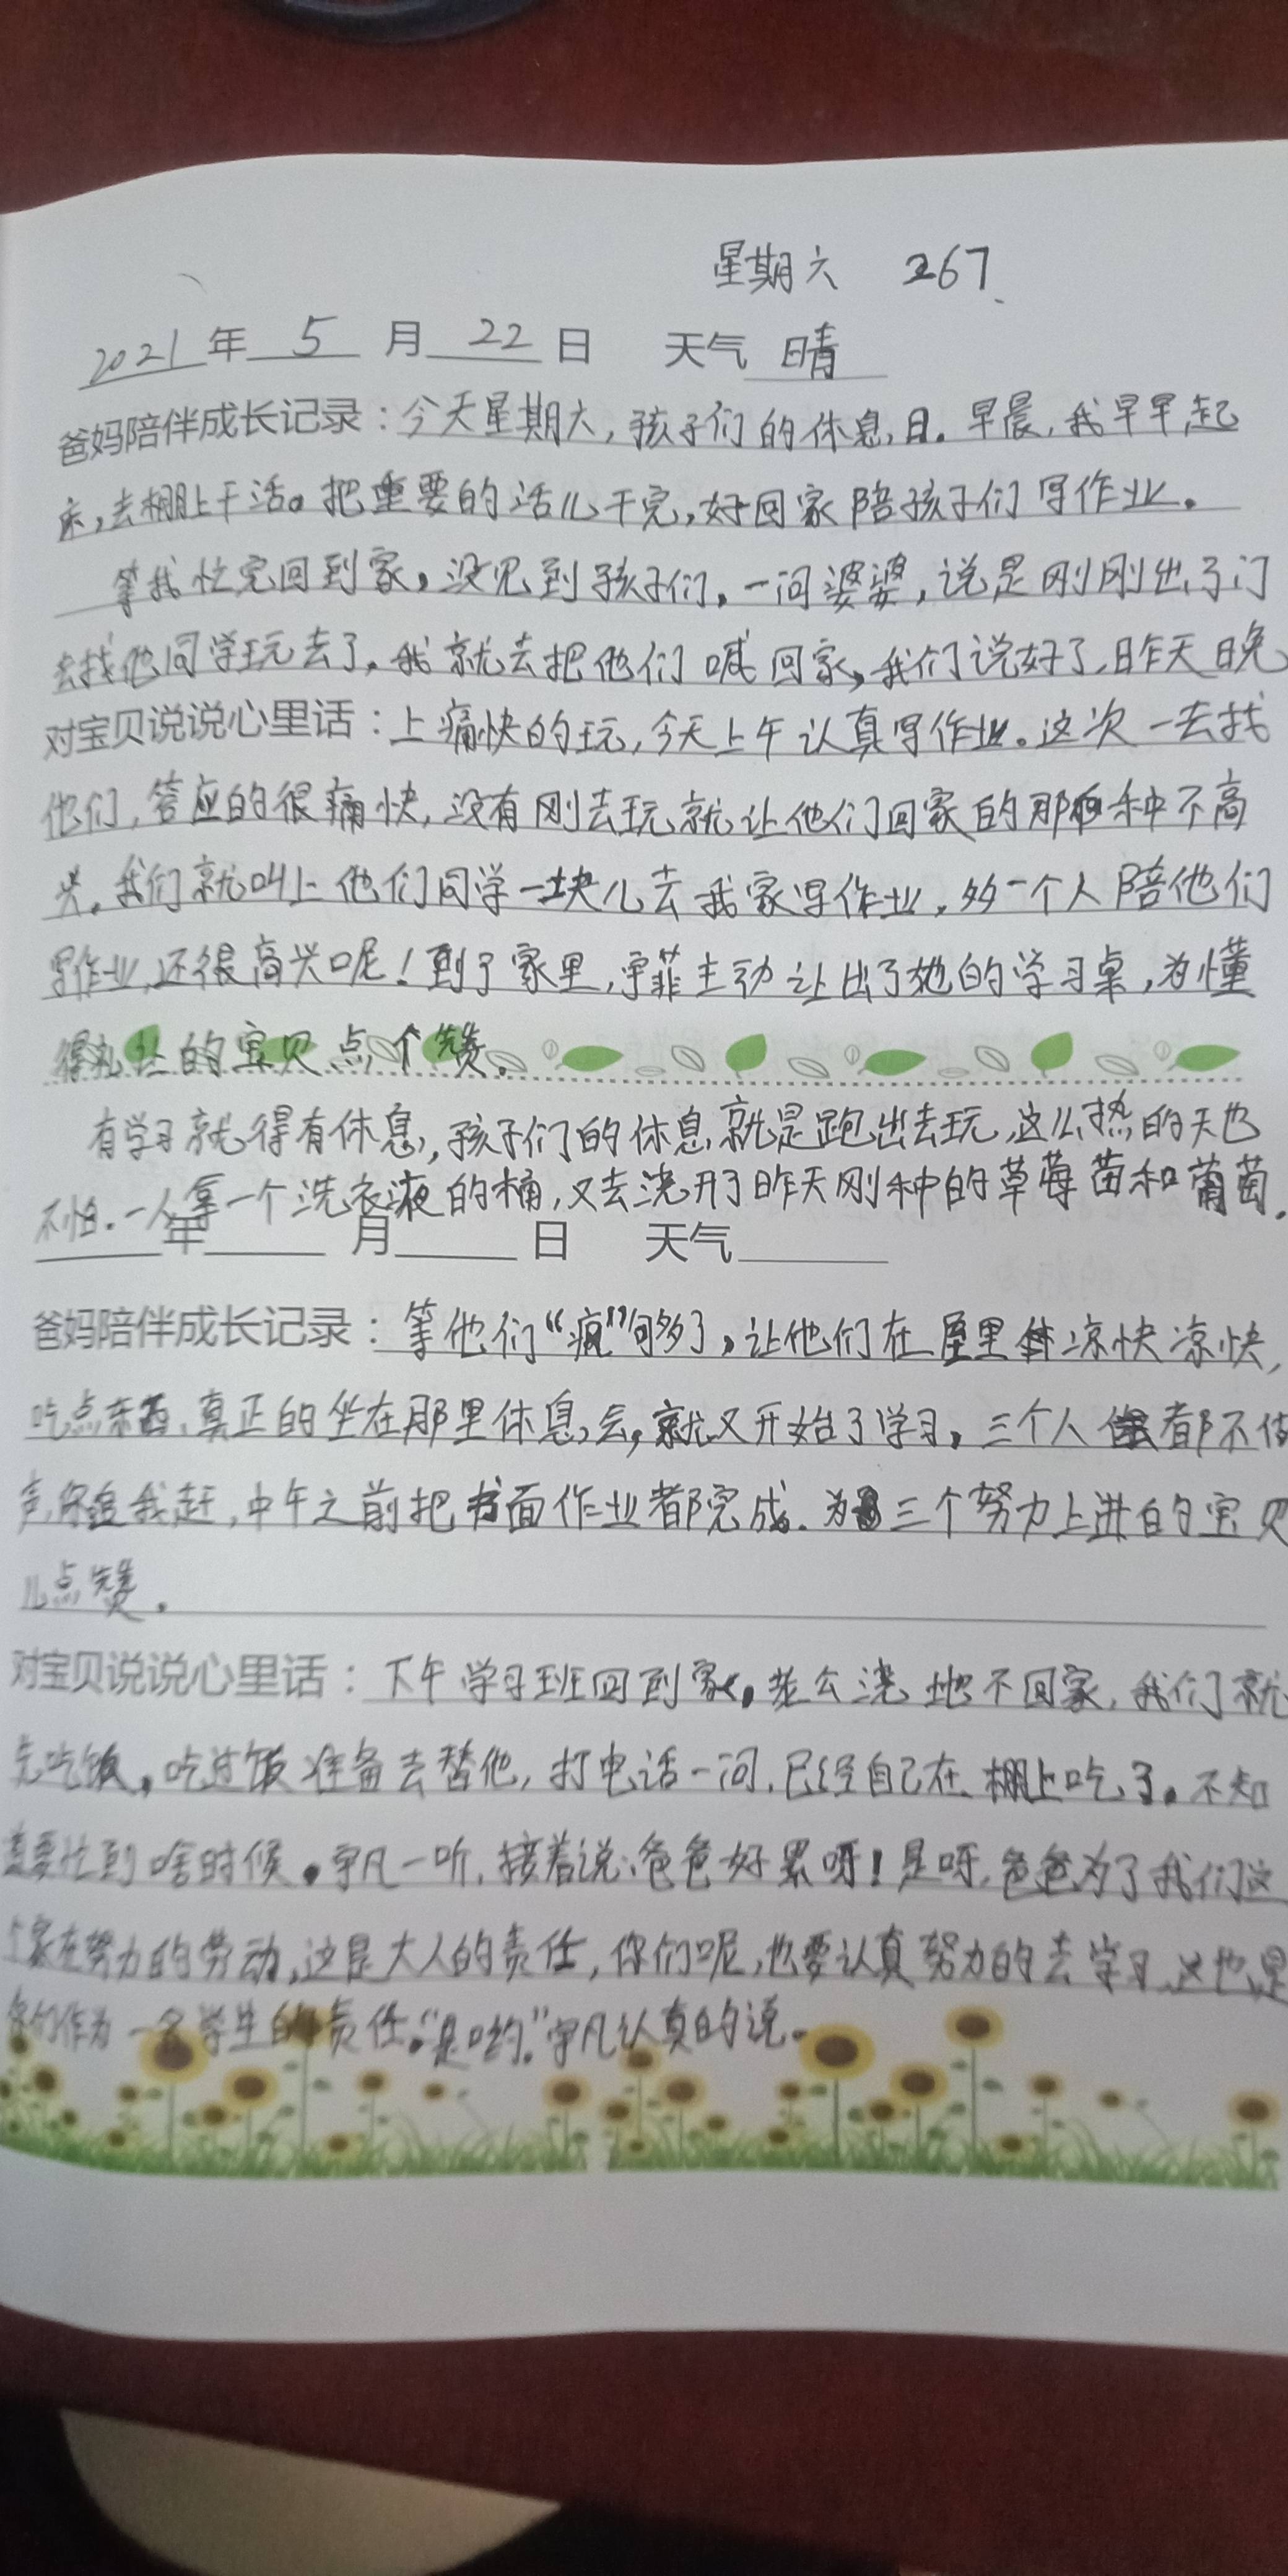 星期六 267
2021年 5 月 22 日 天气 晴
爸妈陪伴成长记录：今天星期六，孩子们的休息日。早晨，我早早起
床，去棚上干活。把重要的活儿干完，好回家陪孩子们写作业。
等我忙完回到家，没见到孩子们，一问婆婆，说是刚刚出了门
去找他同学玩去了，我就去把他们喊回家，我们说好了，昨天晚
对宝贝说说心里话：上痛快的玩，今天上午认真写作业。这次一去找
他们，答应的很痛快，没有刚去玩就让他们回家的那种不高
兴。我们就叫上他们同学一块儿去我家写作业，多一个人陪他们
写作业，还很高兴呢！到了家里，宇菲主动让出了她的学习桌，为懂
得礼让的宝贝点个赞。
有学习就得有休息，孩子们的休息就是跑出去玩，这么热的天也
不怕。一人拿一个洗衣液的桶，又去浇开了昨天刚种的草莓苗和葡萄。
年 月 日 天气
爸妈陪伴成长记录：等他们“疯”够了，让他们在屋里凉快凉快，
吃点东西，真正的坐在那里休息会，就又开始了学习，三个人都不做
声，你追我赶，中午之前把书面作业都完成。为三个努力上进的宝贝
儿点赞。
对宝贝说说心里话：下午学习班回到家，老公浇地不回家，我们就
先吃饭，吃过饭准备去替他，打电话一问，已经自己在棚上吃了。不知
道要忙到啥时候。宇凡一听，接着说：爸爸好累呀！是呀，爸爸为了我们这
个家在努力的劳动，这是大人的责任，你们呢，也要认真努力的去学习，这也是
你们作为一名学生的责任。“是哟。”宇凡认真的说。